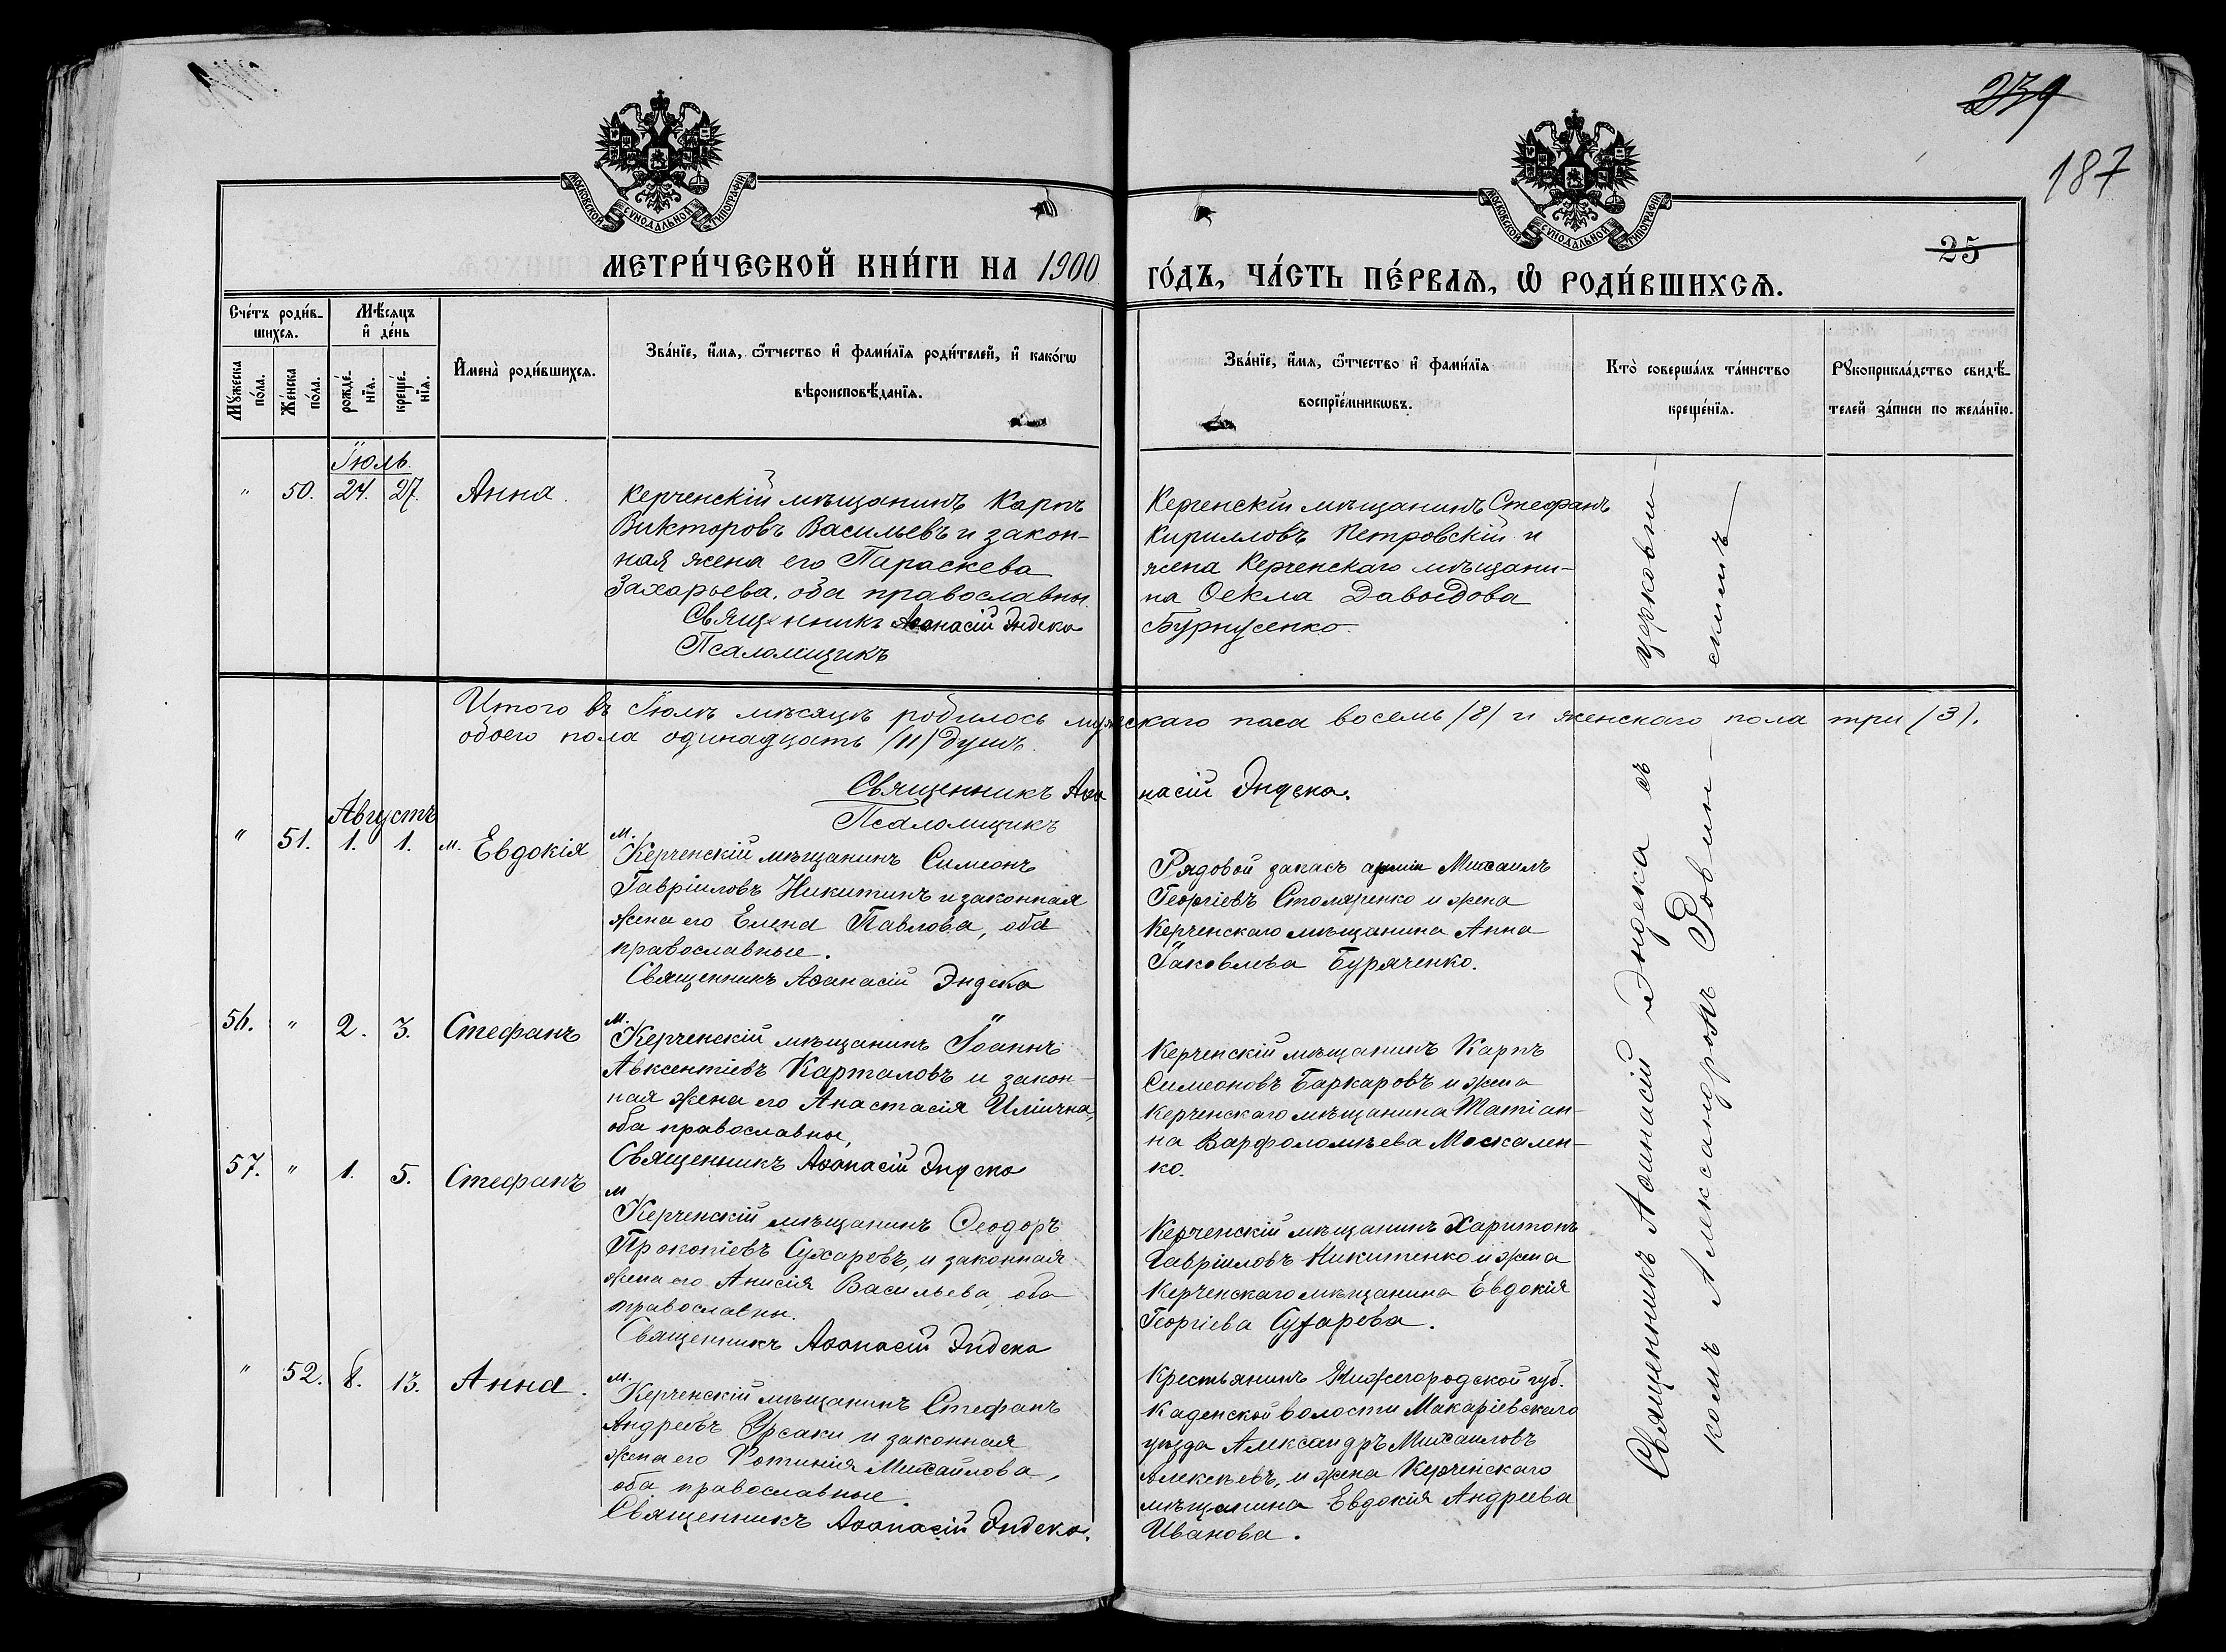 239
187
25
МОСКОВСКОЙ СУНОДАЛЬНОЙ ТИПОГРАФІИ
МОСКОВСКОЙ СУНОДАЛЬНОЙ ТИПОГРАФІИ
МЕТРИ́ЧЕСКОЙ КНИ́ГИ НА 1900 ГО́ДЪ, ЧА́СТЬ ПЕ́РВАѦ, Ѡ҆ РОДИ́ВШИХСѦ.
Сче́тъ роди́в-
шихсѧ.
Мѣ́сѧцъ
и҆ де́нь
Мꙋ́жеска
по́ла.
Же́нска
по́ла.
рожде́-
нїѧ.
креще́-
нїѧ.
И҆мена̀ роди́вшихсѧ.
Зва́нїе, и҆́мѧ, ѻ҆́тчество и҆ фами́лїѧ роди́телей, и҆ како́гѡ
вѣроисповѣ́данїѧ.
Зва́нїе, и҆́мѧ, ѻ҆́тчество и҆ фами́лїѧ
воспрїе́мникѡвъ.
Кто̀ соверша́лъ та́инство
креще́нїѧ.
Рꙋкоприкла́дство свидѣ́-
телей за́писи по жела́нїю.
Іюль.
" 50. 24. 27. Анна.
Керченскій мѣщанинъ Карпъ
Викторовъ Васильевъ и закон-
ная жена его Параскева
Захарьева, оба православны.
Священникъ Аѳанасій Эндека
Псаломщикъ
Керченскій мѣщанинъ Стефанъ
Кирилловъ Петровскій и
жена Керченскаго мѣщани-
на Ѳекла Давыдова
Бурнусенко.
Итого въ Іюлѣ мѣсяцѣ родилось мужскаго пола восемь /8/ и женскаго пола три /3/.
обоего пола одинадцать /11/ душъ.
Священникъ Аѳанасій Эндека.
Псаломщикъ
Августъ
" 51. 1. 1. м. Евдокія
м.
Керченскій мѣщанинъ Симеонъ
Гавріиловъ Никитинъ и законная
жена его Елена Павлова, оба
православные.
Священникъ Аѳанасій Эндека
Рядовой запасъ арміи Михаилъ
Георгіевъ Столяренко и жена
Керченскаго мѣщанина Анна
Іаковлева Буряченко.
56. " 2. 3. Стефанъ
м.
Керченскій мѣщанинъ Іоаннъ
Авксентіевъ Карталовъ и закон-
ная жена его Анастасія Иліична,
оба православны,
Священникъ Аѳанасій Эндека
Керченскій мѣщанинъ Карпъ
Симеоновъ Баркаровъ и жена
Керченскаго мѣщанина Татіан-
на Варфоломѣева Москален-
ко.
57. " 1. 5. Стефанъ
м
Керченскій мѣщанинъ Ѳеодоръ
Прокопіевъ Сухаревъ, и законная
жена его Анисія Васильева, оба
православны.
Священникъ Аѳанасій Эндека
Керченскій мѣщанинъ Харитонъ
Гавріиловъ Никитенко и жена
Керченскаго мѣщанина Евдокія
Георгіева Сухарева.
" 52. 8. 13. Анна.
м.
Керченскій мѣщанинъ Стефанъ
Андреевъ Урсаки и законная
жена его Фотинія Михайлова,
оба православные.
Священникъ Аѳанасій Эндека.
Крестьянинъ Нижегородской губ.
Каденской волости Макаріевскаго
уѣзда Александръ Михаиловъ
Алексѣевъ, и жена Керченскаго
мѣщанина Евдокія Андреева
Иванова.
Священникъ Аѳанасій Эндека съ церковни-
комъ Александромъ Ровин-скимъ